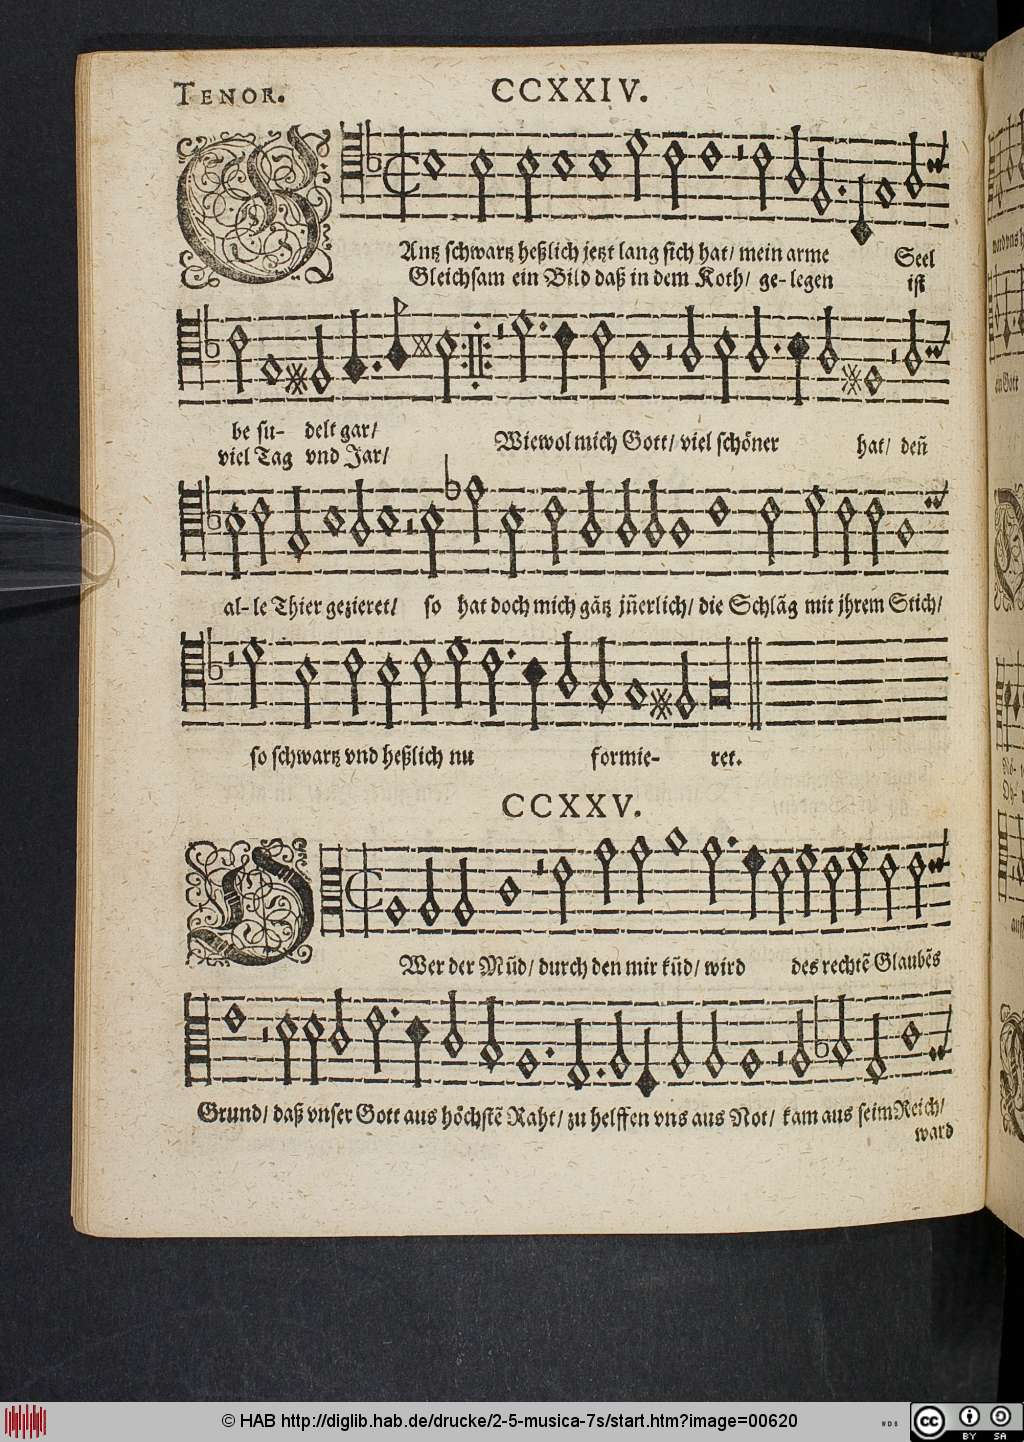 TENOR. CCXXIV.
GAntz schwartz heßlich jetzt lang sich hat/ mein arme Seel
Gleichsam ein Bild daß in dem Koth/ ge- legen ist
be su- delt gar/ Wiewol mich Gott/ viel schöner hat/ deñ
viel Tag vnd Jar/
al- le Thier gezieret/ so hat doch mich gãtz jñerlich/ die Schlãg mit jhrem Stich/
so schwartz vnd heßlich nu formie- ret.
CCXXV.
SWer der Mũd/ durch den mir kũd/ wird des rechtẽ Glaubẽs
Grund/ daß vnser Gott aus höchstẽ Raht/ zu helffen vns aus Not/ kam aus seim Reich/
ward
© HAB http://diglib.hab.de/drucke/2-5-musica-7s/start.htm?image=00620
cc BY SA